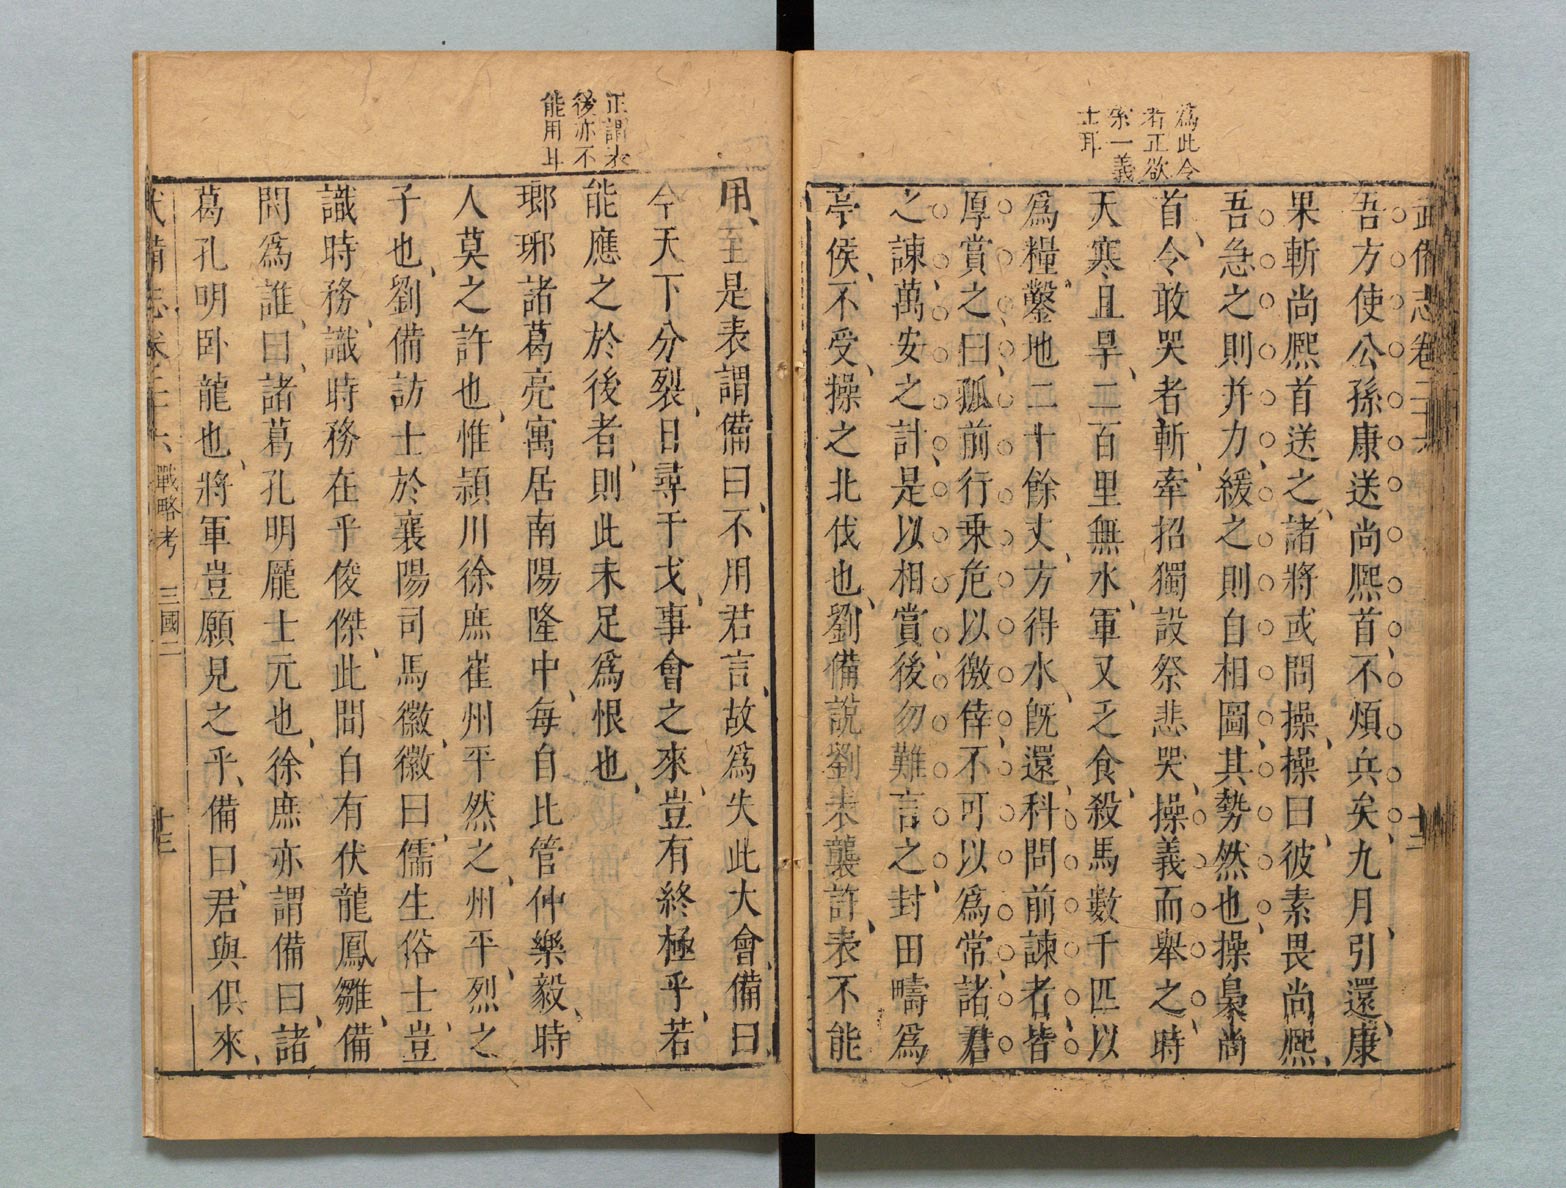 為此令
者正欲
索一義
士耳
武備志卷二十六
十二
吾方使公孫康送尚熈首、不煩兵矣、九月、引還、康
果斬尚熈首送之、諸將或問操、操曰、彼素畏尚熈、
吾急之則并力、緩之則自相圖、其勢然也、操梟尚
首、令敢哭者斬、牽招獨設祭悲哭、操義而舉之、時
天寒且旱、二百里無水、軍又乏食、殺馬數千匹以
爲糧、鑿地二十餘丈、方得水、旣還、科問前諫者、皆
厚賞之、曰、孤前行乗危以徼倖、不可以爲常、諸君
之諫、萬安之計、是以相賞、後勿難言之、封田疇爲
亭侯、不受、操之北伐也、劉備說劉表襲許、表不能
正謂表
後亦不
能用耳
用、至是表謂備曰、不用君言、故爲失此大會、備曰、
今天下分裂、日尋干戈、事會之來、豈有終極乎、若
能應之於後者、則此未足爲恨也、
瑯琊諸葛亮寓居南陽隆中、每自比管仲樂毅、時
人莫之許也、惟潁川徐庶崔州平然之、州平、烈之
子也、劉備訪士於襄陽司馬徽、徽曰、儒生俗士、豈
識時務、識時務在乎俊傑、此間自有伏龍鳳雛、備
問爲誰、曰、諸葛孔明龐士元也、徐庶亦謂備曰、諸
葛孔明卧龍也、將軍豈願見之乎、備曰、君與俱來、
武備志卷二十六 戰略考 三國二
十三